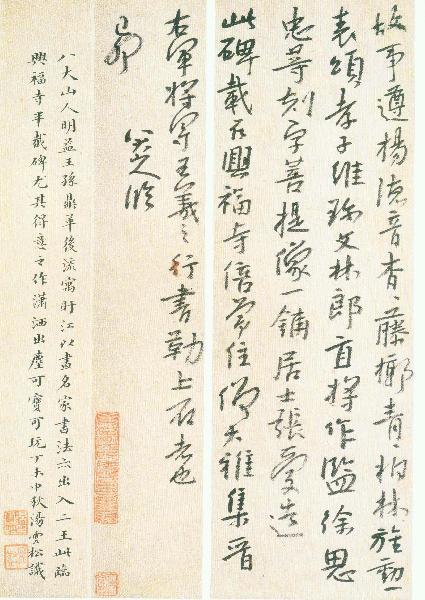 故事遵揚德音杳、藤鄉青、柏林旌勳
表頌孝子維弥文林郎直將作監徐思
忠等刻字菩提像一鋪居士張愛造
此碑載在興福寺倍常住僧大雅集晉
右軍將軍王羲之行書勒上石者也
己卯
八大山人臨
八大山人明益王孫鼎革後流寓盱江以書名家書法亦出入二王此臨
興福寺半截碑尤其得意之作瀟洒出塵可寶可玩丁未中秋湯雲松識